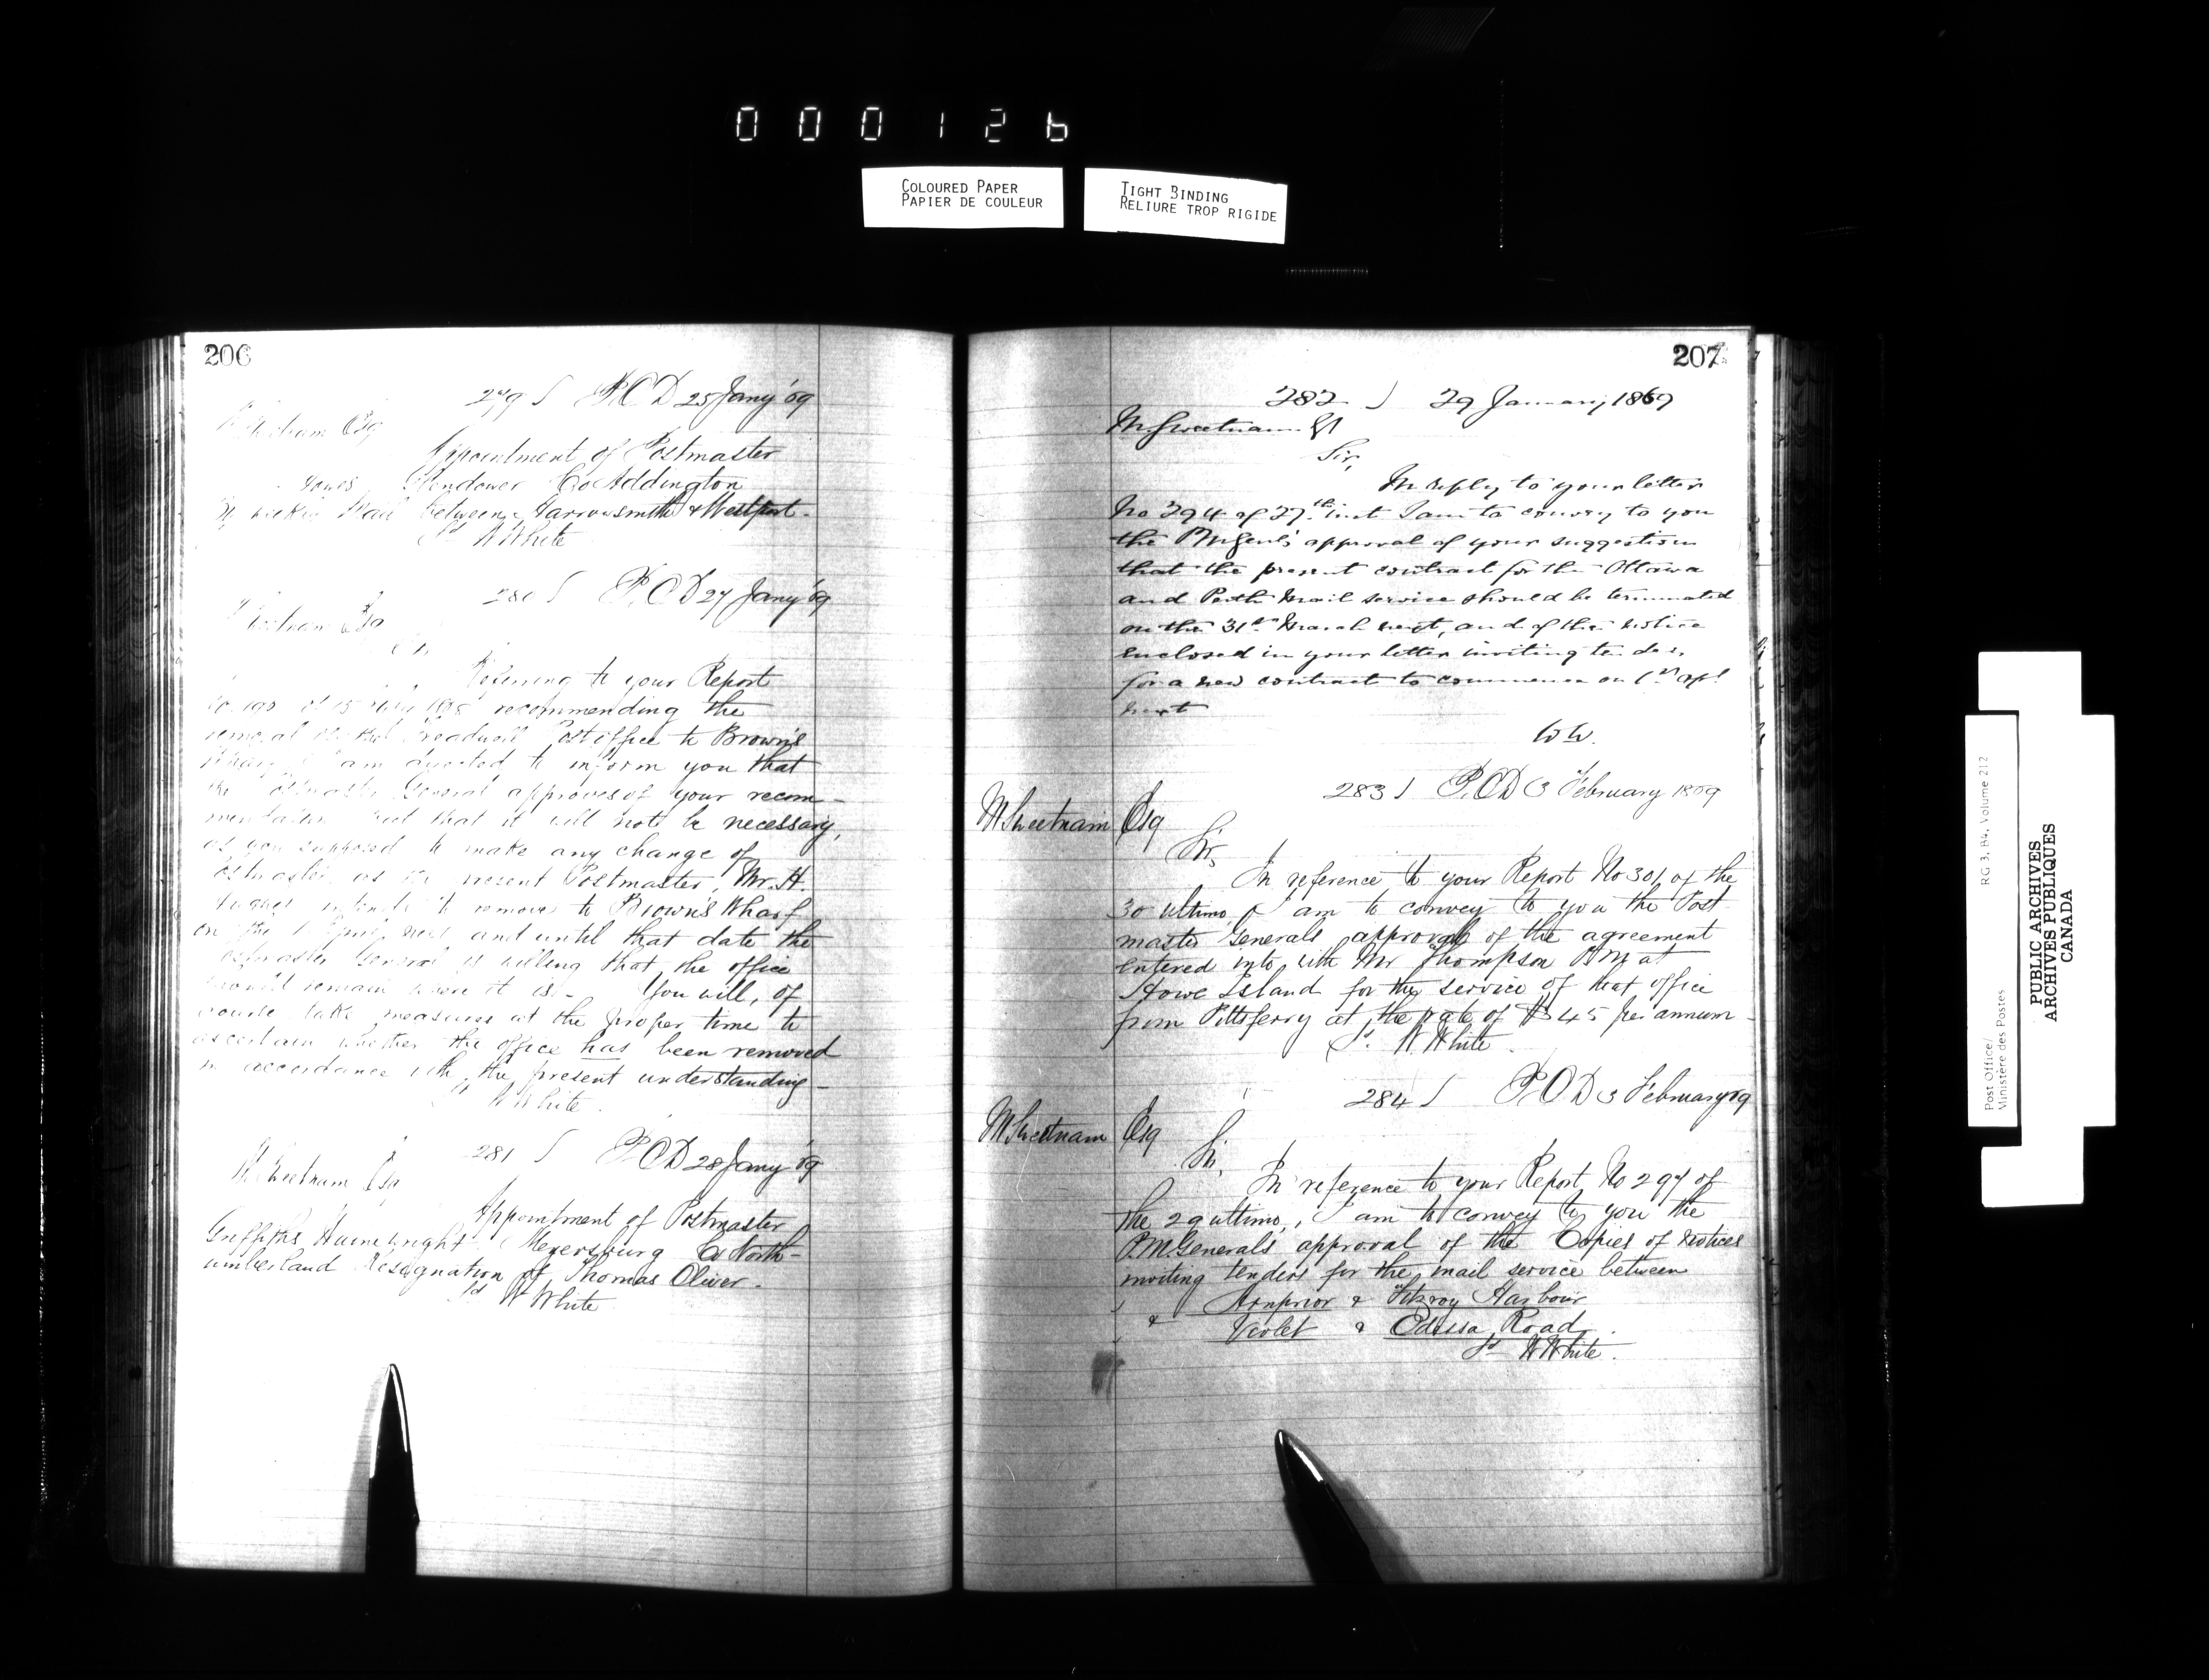 000126
COLOURED PAPER
PAPIER DE COULEUR
TIGHT BINDING
RELIURE TROP RIGIDE
206
279 P.O.D 25 Jany '69
Esq
Appointment of Postmaster
Glendower Co Addington
Mail between Harrowsmith & Westport.
Sd W White
280 P.O.D 27 Jany '69
Esq
Referring to your Report
recommending the
Treadwell Post office to Brown's
I am directed to inform you that
the Postmaster General approves of your recom-
mendation that it will not be necessary,
as you supposed to make any change of
Postmaster, as the present Postmaster, Mr. H.
Hughes intends to remove to Brown's Wharf
on the 1 April next and until that date the
Postmaster General is willing that the office
should remain where it is - You will, of
course take measures at the proper time to
ascertain whether the office has been removed
in accordance with the present understanding -
Sd W White.
281 P.O.D 28 Jany '69
M Sweetnam Esq
Appointment of Postmaster
Griffiths Meyersburg Co North-
umberland Resignation of Thomas Oliver.
Sd W White
207
282 29 January 1869
M. Sweetnam
Sir,
In reply to your letter
No 294 of 27th inst I am to convey to you
the PMGenl's approval of your suggestion
that the present contract for the Ottawa
and Perth Mail service should be terminated
on the 31st March next, and of the notice
enclosed in your letter inviting tenders
for a new contract to commence on 1st Apl
next
WW.
283 P.O.D 3 February 1869
M Sweetnam Esq
Sir,
In reference to your Report No 301 of the
30 ultimo, I am to convey to you the Post
master Generals approval of the agreement
entered into with Mr Thompson P.M at
Howe Island for the service of that office
from Pittsferry at the rate of $45 per annum -
Sd. W White.
284 P.O.D 3 February 69
M Sweetnam Esq
Sir,
In reference to your Report No 297 of
the 29 ultimo, I am to convey to you the
P.M.Generals approval of the Copies of Notices
inviting tenders for the mail service between
Arnprior & Fitzroy Harbour
& Violet & Odessa Road.
Sd W White.
Post Office/
Ministère des Postes
RG 3, B4, Volume 212
PUBLIC ARCHIVES
ARCHIVES PUBLIQUES
CANADA